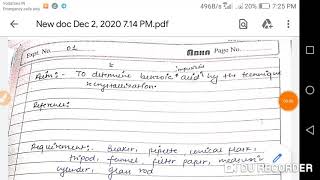 Vodafone IN
Emergency calls only
496B/s 7:25 PM
New doc Dec 2, 2020 7.14 PM.pdf
Expt. No. 01
ANNA Page No.
impurities
Aim:- To determine benzoic acid by the technique
recrystallization.
Reference:
Requirement: Beaker, pipette, conical flask,
tripod, funnel, filter paper, measuring
cylinder, glass rod
DU RECORDER